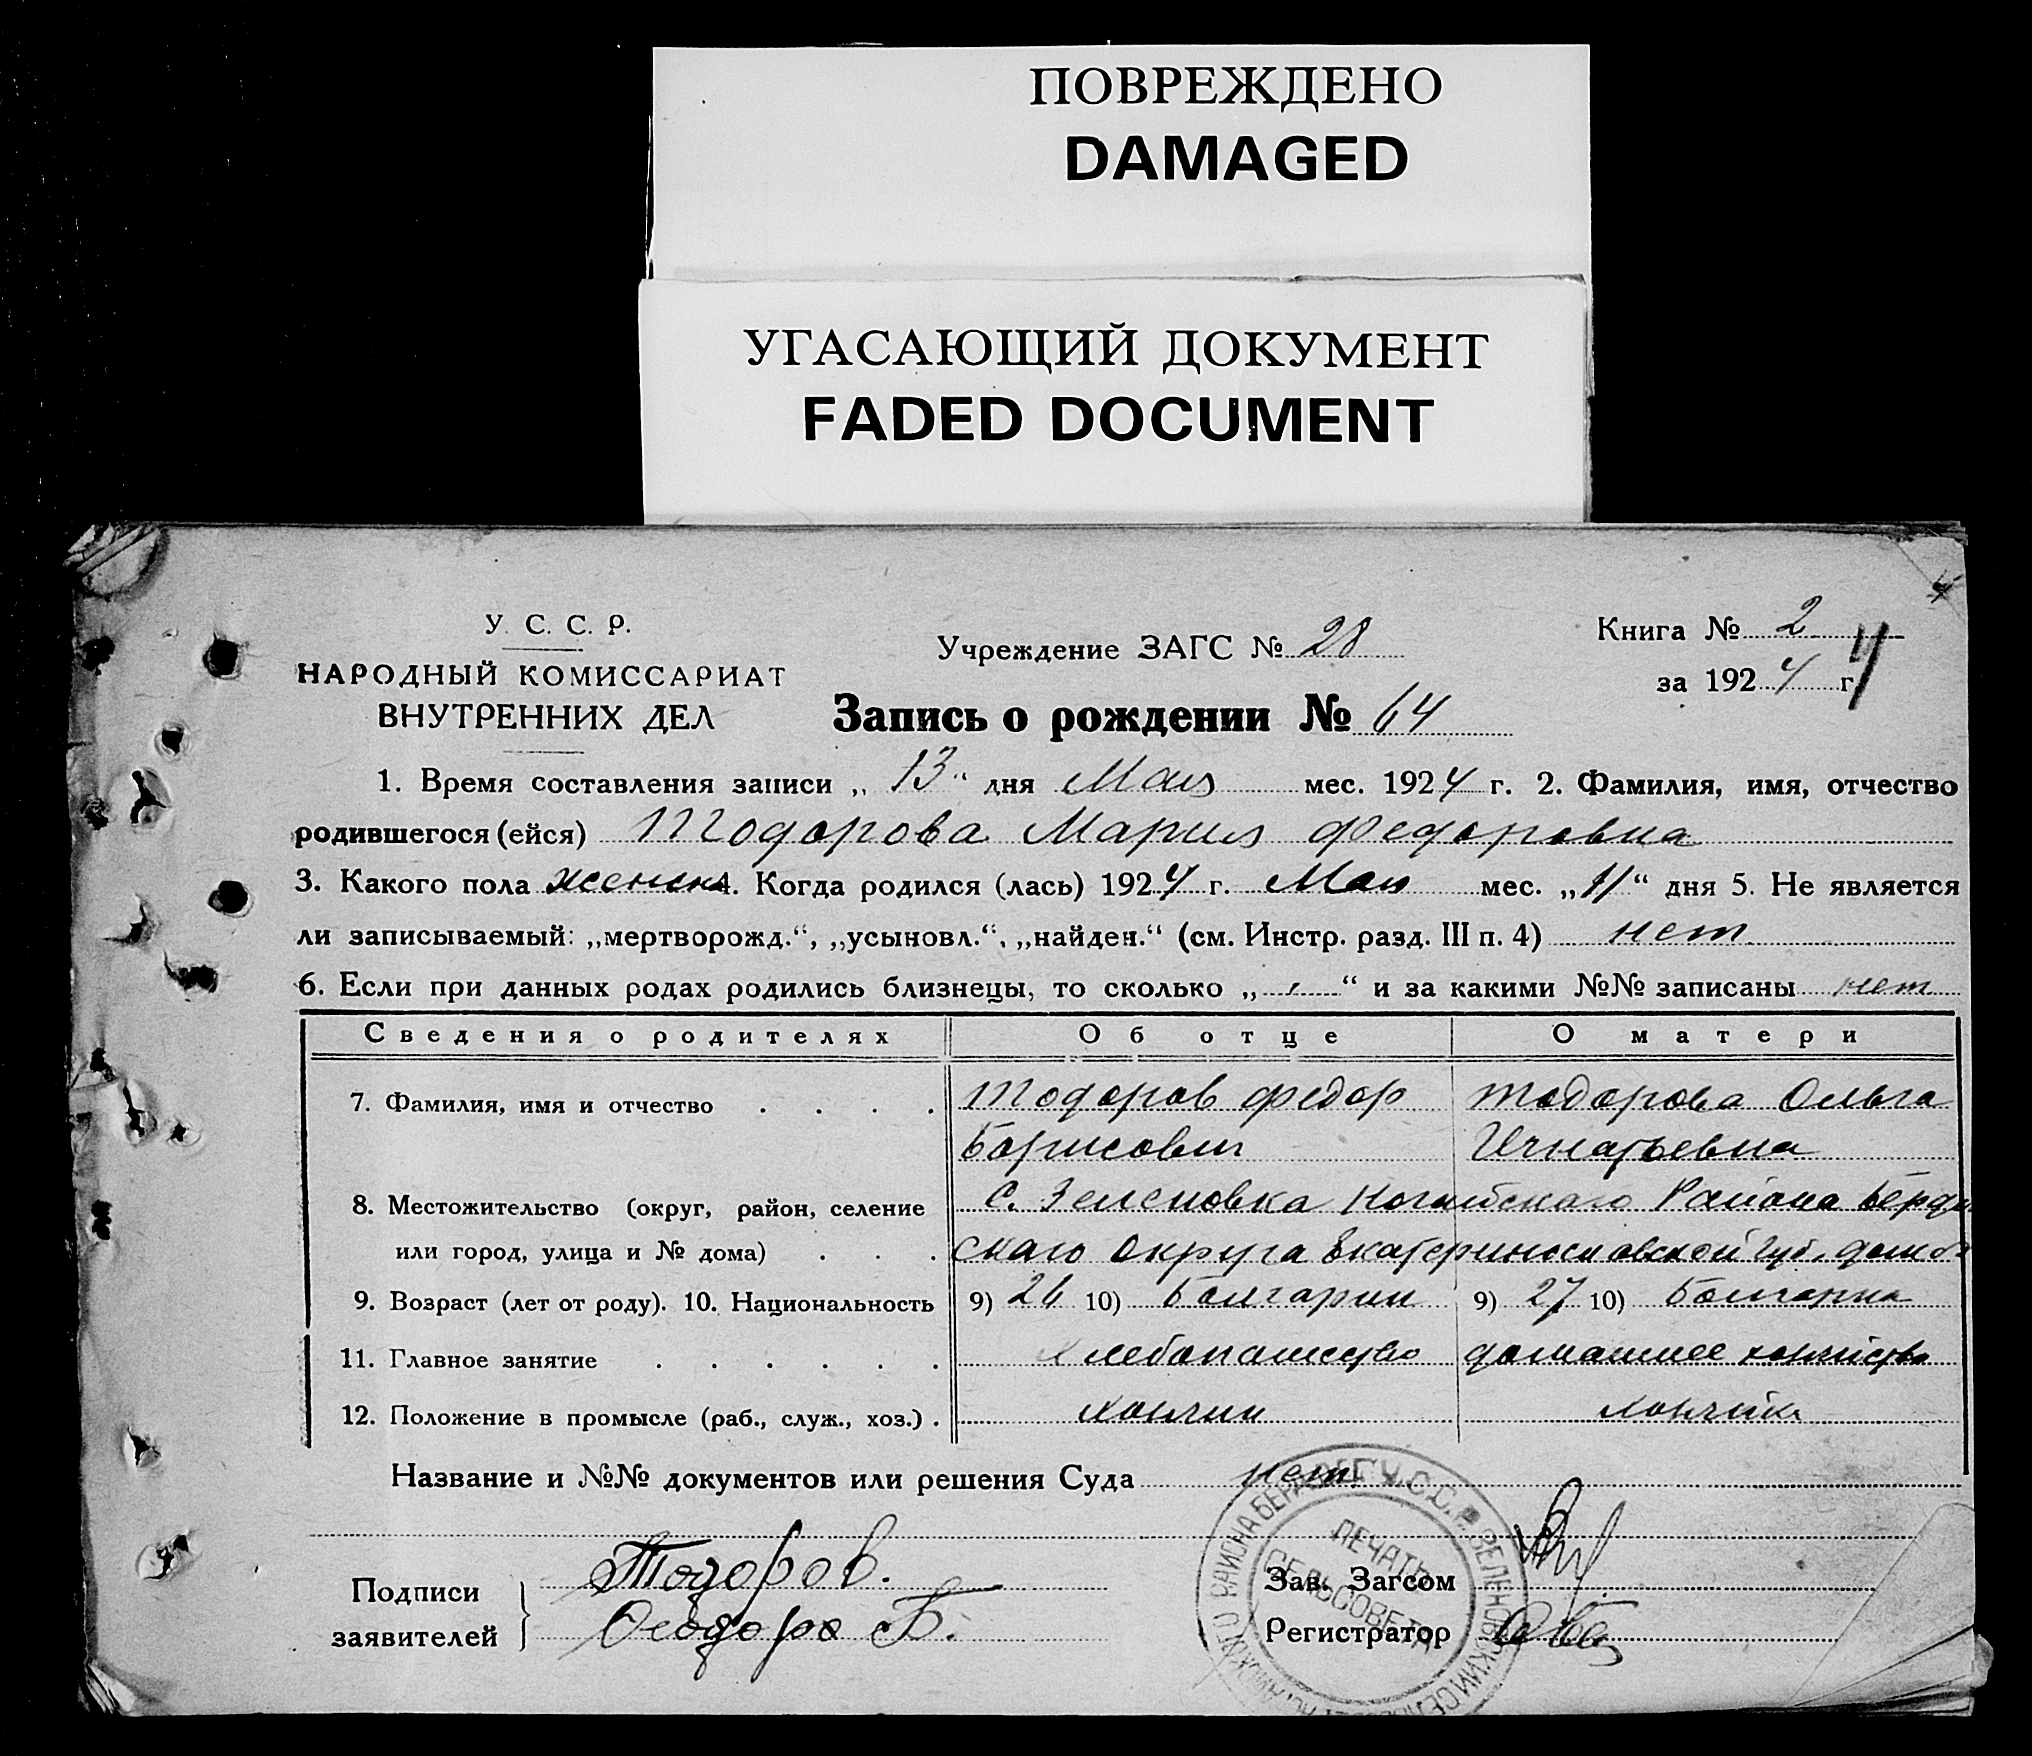 ПОВРЕЖДЕНО
DAMAGED
УГАСАЮЩИЙ ДОКУМЕНТ
FADED DOCUMENT
4
У. С. С. Р.
НАРОДНЫЙ КОМИССАРИАТ
ВНУТРЕННИХ ДЕЛ
Учреждение ЗАГС № 28
Книга № 2
за 1924 г.
4
Запись о рождении № 64
1. Время составления записи „ 13 “ дня Мая мес. 1924 г. 2. Фамилия, имя, отчество
родившегося (ейся) Тодорова Мария Федоровна
3. Какого пола женск 4. Когда родился (лась) 1924 г. Мая мес. „11“ дня 5. Не является
ли записываемый: „мертворожд.“, „усыновл.“, „найден.“ (см. Инстр. разд. III п. 4) нет
6. Если при данных родах родились близнецы, то сколько „ “ и за какими №№ записаны нет
Сведения о родителях Об отце О матери
7. Фамилия, имя и отчество . . . . Тодоров Федор Тодорова Ольга
Борисович Игнатьевна
8. Местожительство (округ, район, селение с. Зеленовка Ногайскаго Района Берд
или город, улица и № дома) . . . скаго Округа Екатеринославской Губ.
9. Возраст (лет от роду). 10. Национальность 9) 26 10) Болгарин 9) 27 10) Болгарка
11. Главное занятие . . . . . . хлебопашество домашнее хозяйство
12. Положение в промысле (раб., служ., хоз.) . хозяин
Название и №№ документов или решения Суда нет
Подписи
заявителей
Тодоров.
Ѳеодоръ Б.
Зав. Загсом
Регистратор
ПЕЧАТЬ
СЕЛЬСОВЕТА